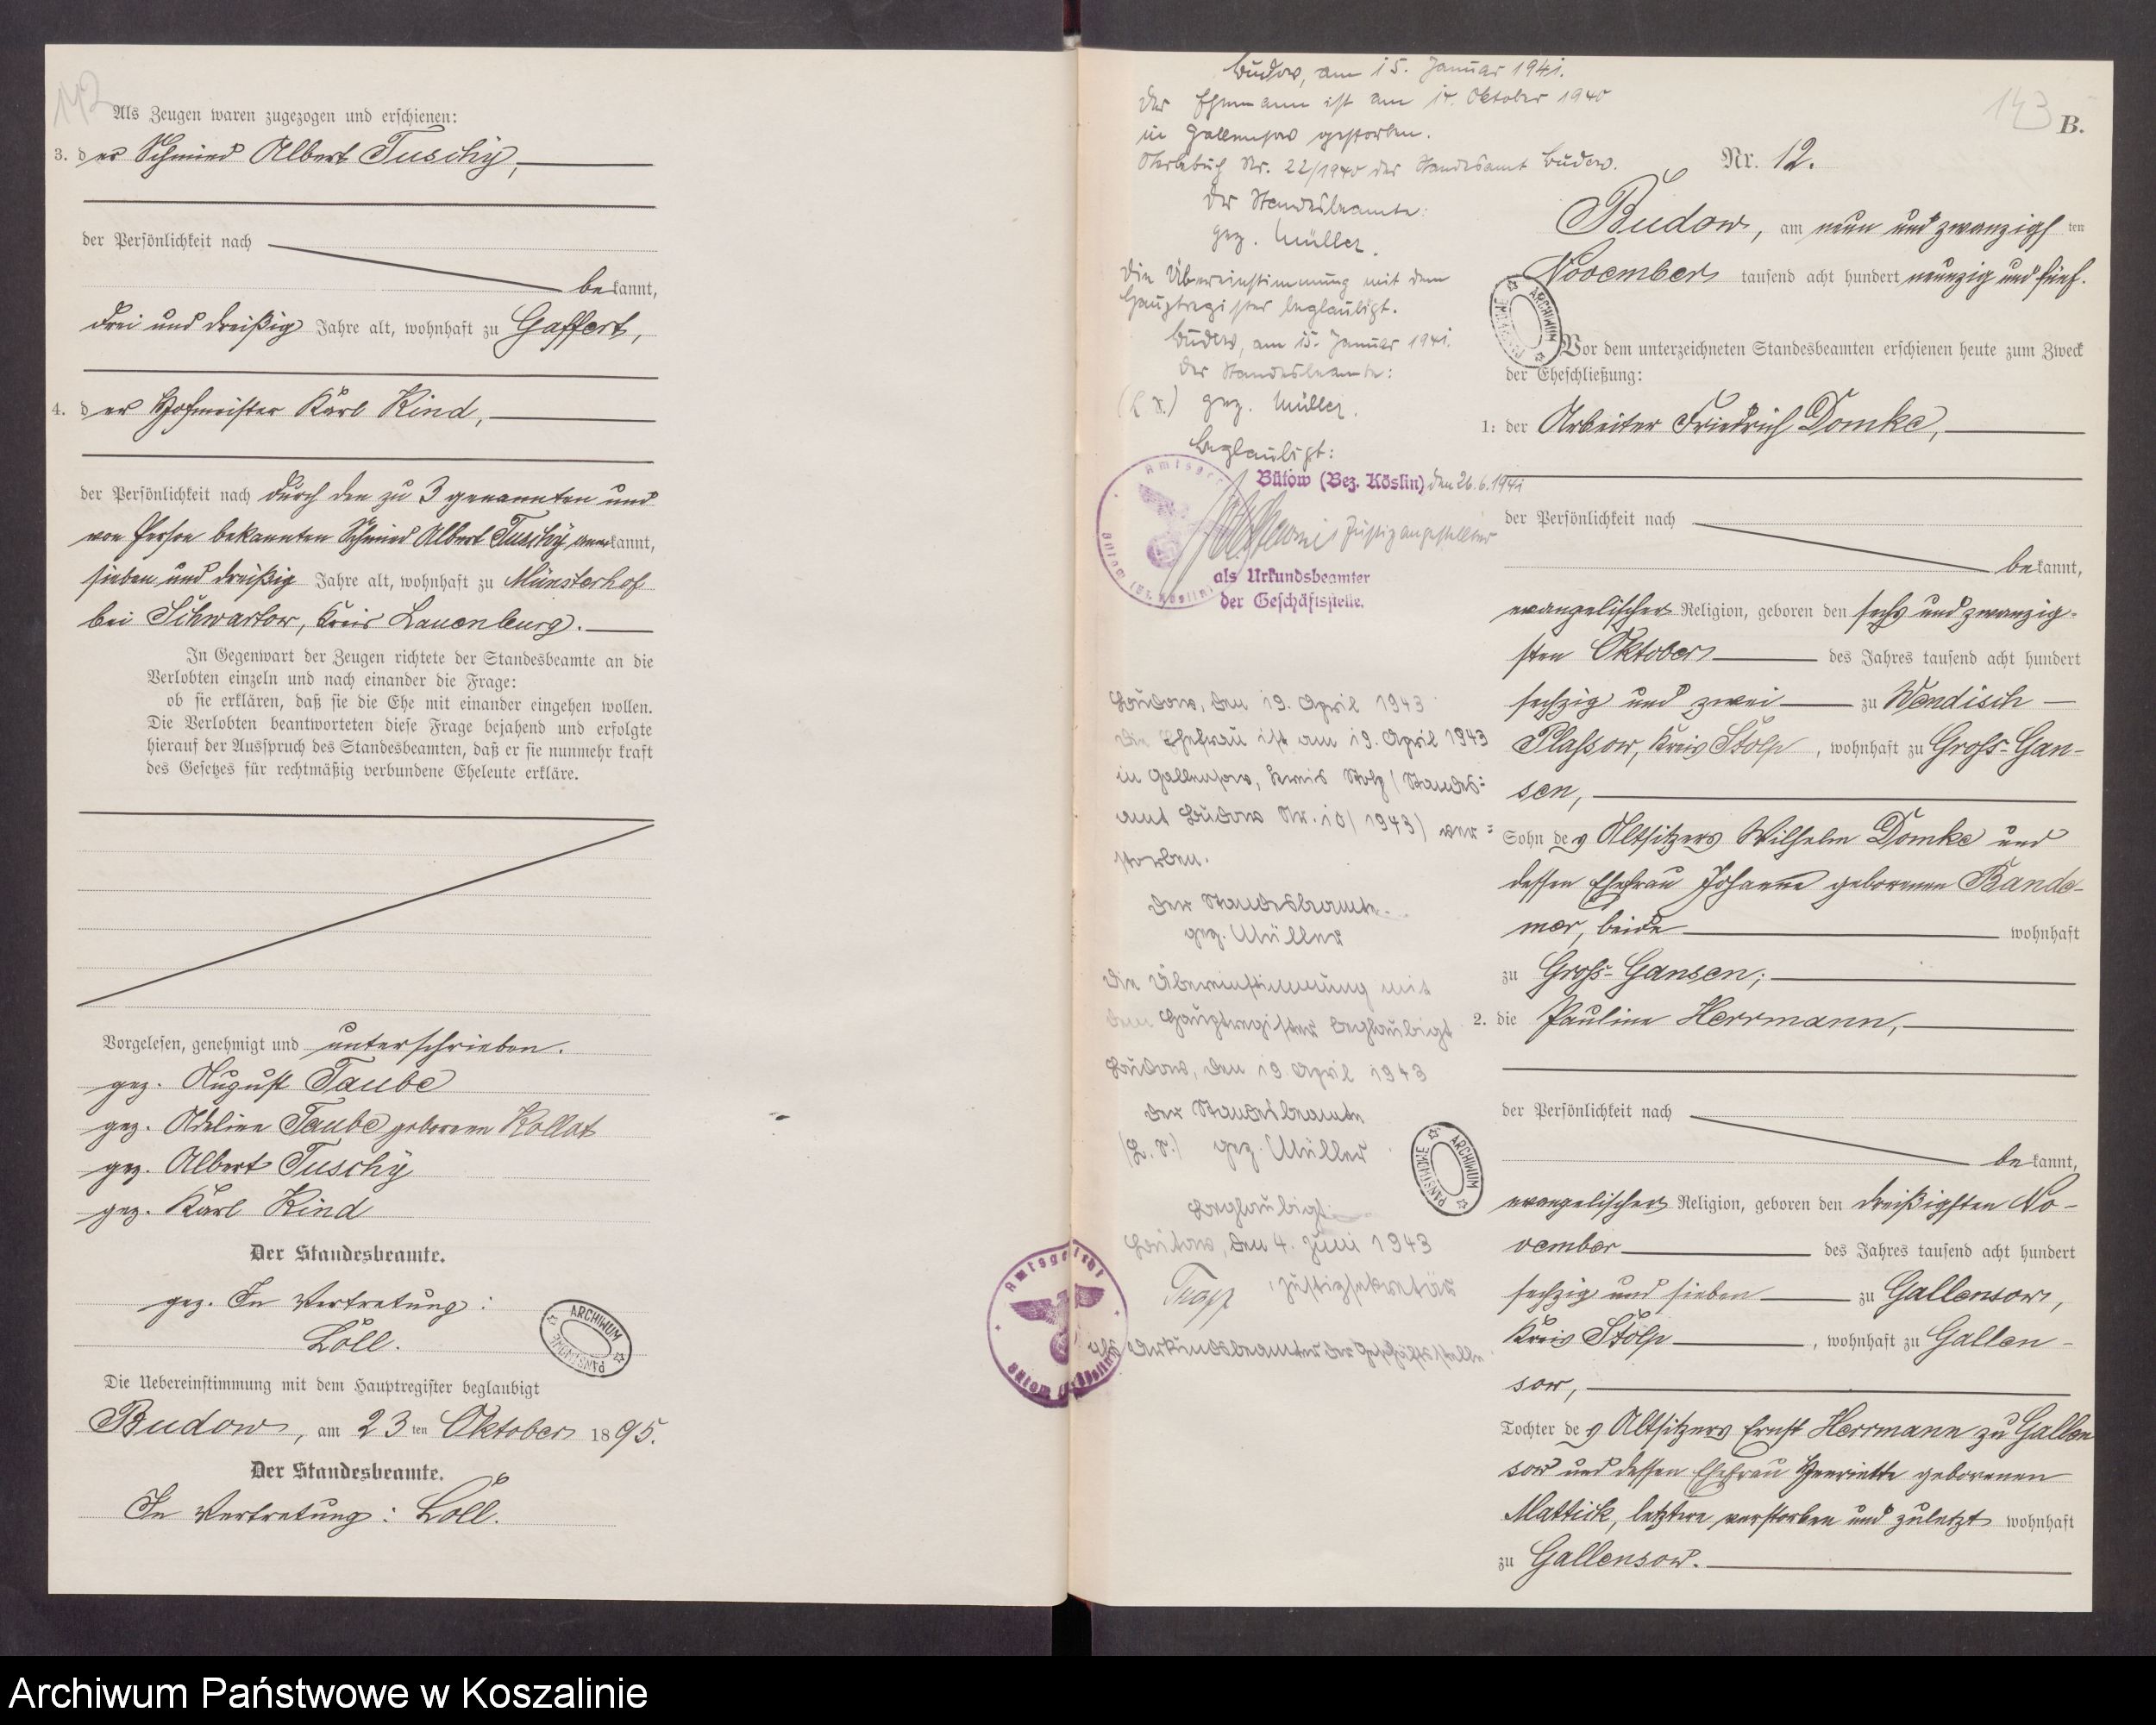 142
Als Zeugen waren zugezogen und erschienen:
3. der Schmied Albert Tuschy,
der Persönlichkeit nach
bekannt,
drei und dreißig Jahre alt, wohnhaft zu Gaffert,
4. der Hofmeister Karl Kind,
der Persönlichkeit nach durch den zu 3 genannten und
von Person bekannten Schmied Albert Tuschy anerkannt,
sieben und dreißig Jahre alt, wohnhaft zu Münsterhof
bei Schwartow, Kreis Lauenburg.
In Gegenwart der Zeugen richtete der Standesbeamte an die
Verlobten einzeln und nach einander die Frage:
ob sie erklären, daß sie die Ehe mit einander eingehen wollen.
Die Verlobten beantworteten diese Frage bejahend und erfolgte
hierauf der Ausspruch des Standesbeamten, daß er sie nunmehr kraft
des Gesetzes für rechtmäßig verbundene Eheleute erkläre.
Vorgelesen, genehmigt und unterschrieben.
gez. August Taube
gez. Adeline Taube geborene Kollat
gez. Albert Tuschy
gez. Karl Kind
Der Standesbeamte.
gez. In Vertretung:
Löll.
ARCHIWUM PAŃSTWOWE
Die Uebereinstimmung mit dem Hauptregister beglaubigt
Budow, am 23ten Oktober 1895.
Der Standesbeamte.
In Vertretung: Löll.
Budow, am 15. Januar 1941.
Der Ehemann ist am 14. Oktober 1940
in Gallensow gestorben.
Sterbebuch Nr. 22/1940 des Standesamt Budow.
Der Standesbeamte:
gez. Müller.
Die Übereinstimmung mit dem
Hauptregister beglaubigt.
Budow, am 15. Januar 1941.
Der Standesbeamte:
(L. S.) gez. Müller.
Beglaubigt:
Bütow (Bez. Köslin) den 26.6.1941
Justizangestellter
als Urkundsbeamter
der Geschäftsstelle.
Budow, den 19. April 1943
Die Ehefrau ist am 19. April 1943
in Gallensow, Kreis Stolp (Standes=
amt Budow Nr. 10/1943) ver=
storben.
Der Standesbeamte.
gez. Müller
Die Übereinstimmung mit
dem Hauptregister beglaubigt
Budow, den 19 April 1943
Der Standesbeamte
(L. S.) gez. Müller
Beglaubigt:
Bütow, den 4. Juni 1943
Trapp, Justizsekretär
als Urkundsbeamter der Geschäftsstelle
Amtsgericht Bütow (Bz. Köslin)
143
B.
Nr. 12.
Budow, am neun und zwanzigsten
November tausend acht hundert neunzig und fünf.
ARCHIWUM PAŃSTWOWE
Vor dem unterzeichneten Standesbeamten erschienen heute zum Zweck
der Eheschließung:
1: der Arbeiter Friedrich Domke,
der Persönlichkeit nach
bekannt,
evangelischer Religion, geboren den sechs und zwanzig-
sten Oktober des Jahres tausend acht hundert
sechzig und zwei zu Wendisch
Plassow, Kreis Stolp, wohnhaft zu Gross-Gan-
sen,
Sohn des Altsitzers Wilhelm Domke und
dessen Ehefrau Johanne geborenen Bande-
mer, beide wohnhaft
zu Gross-Gansen;
2. die Pauline Herrmann,
der Persönlichkeit nach
bekannt,
evangelischer Religion, geboren den dreißigsten No-
vember des Jahres tausend acht hundert
sechzig und sieben zu Gallensow,
Kreis Stolp, wohnhaft zu Gallen-
sow,
Tochter des Altsitzers Ernst Herrmann zu Gallen
sow und dessen Ehefrau Henriette geborenen
Mattick, letztere verstorben und zuletzt wohnhaft
zu Gallensow.
ARCHIWUM PAŃSTWOWE
Archiwum Państwowe w Koszalinie